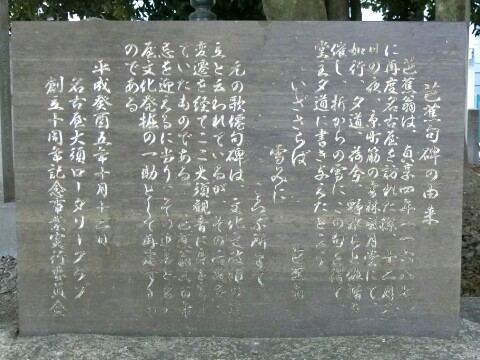 芭蕉句碑の由来
芭蕉翁は、貞享四年(一六八七
に再度名古屋を訪れた際、十二月
川の夜、本町筋の書林風月堂にて
如行 夕道 荷兮 野水らと俳席を
催し、折からの雪に この句を得て
堂主夕道に書き与えたという
いざさらば 雪見に ころぶ所まで
芭蕉翁
元の歌壇句碑は、文化
立と云われているが、その
変遷を経てここ大須観音に
ていたものである。
忌を迎えるに当り、その
屋文化発掘の一助として再建する
のである
平成癸酉五年十月十二日
名古屋大須ロータリークラブ
創立十周年記念事業実行委員会